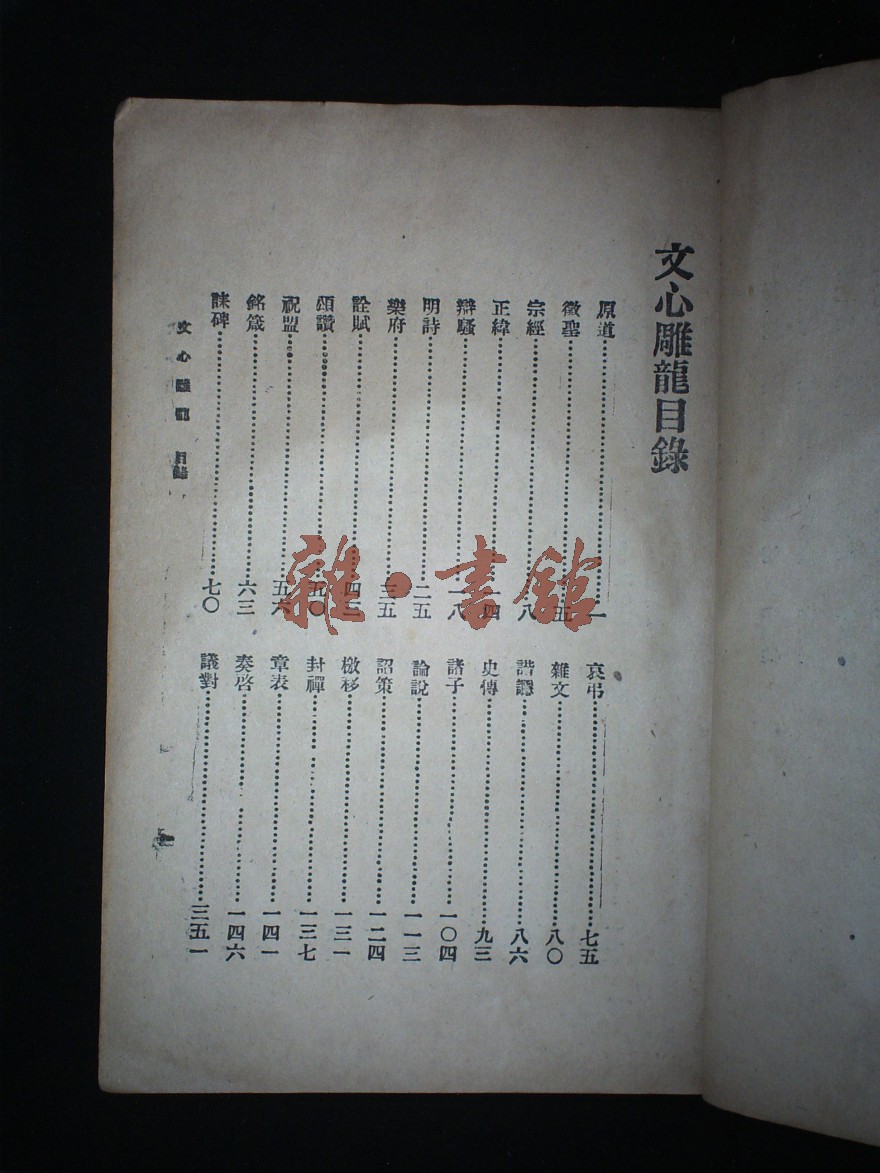 文心雕龍目錄
原道 一
徵聖 五
宗經 八
正緯 一四
辯騷 一八
明詩 二五
樂府 三五
詮賦 四二
頌讚 五〇
祝盟 五六
銘箴 六三
誄碑 七〇
哀弔 七五
雜文 八〇
諧讔 八六
史傳 九三
諸子 一〇四
論說 一一三
詔策 一二四
檄移 一三一
封禪 一三七
章表 一四一
奏啓 一四六
議對 三五一
文心雕龍 目錄
雜·書館